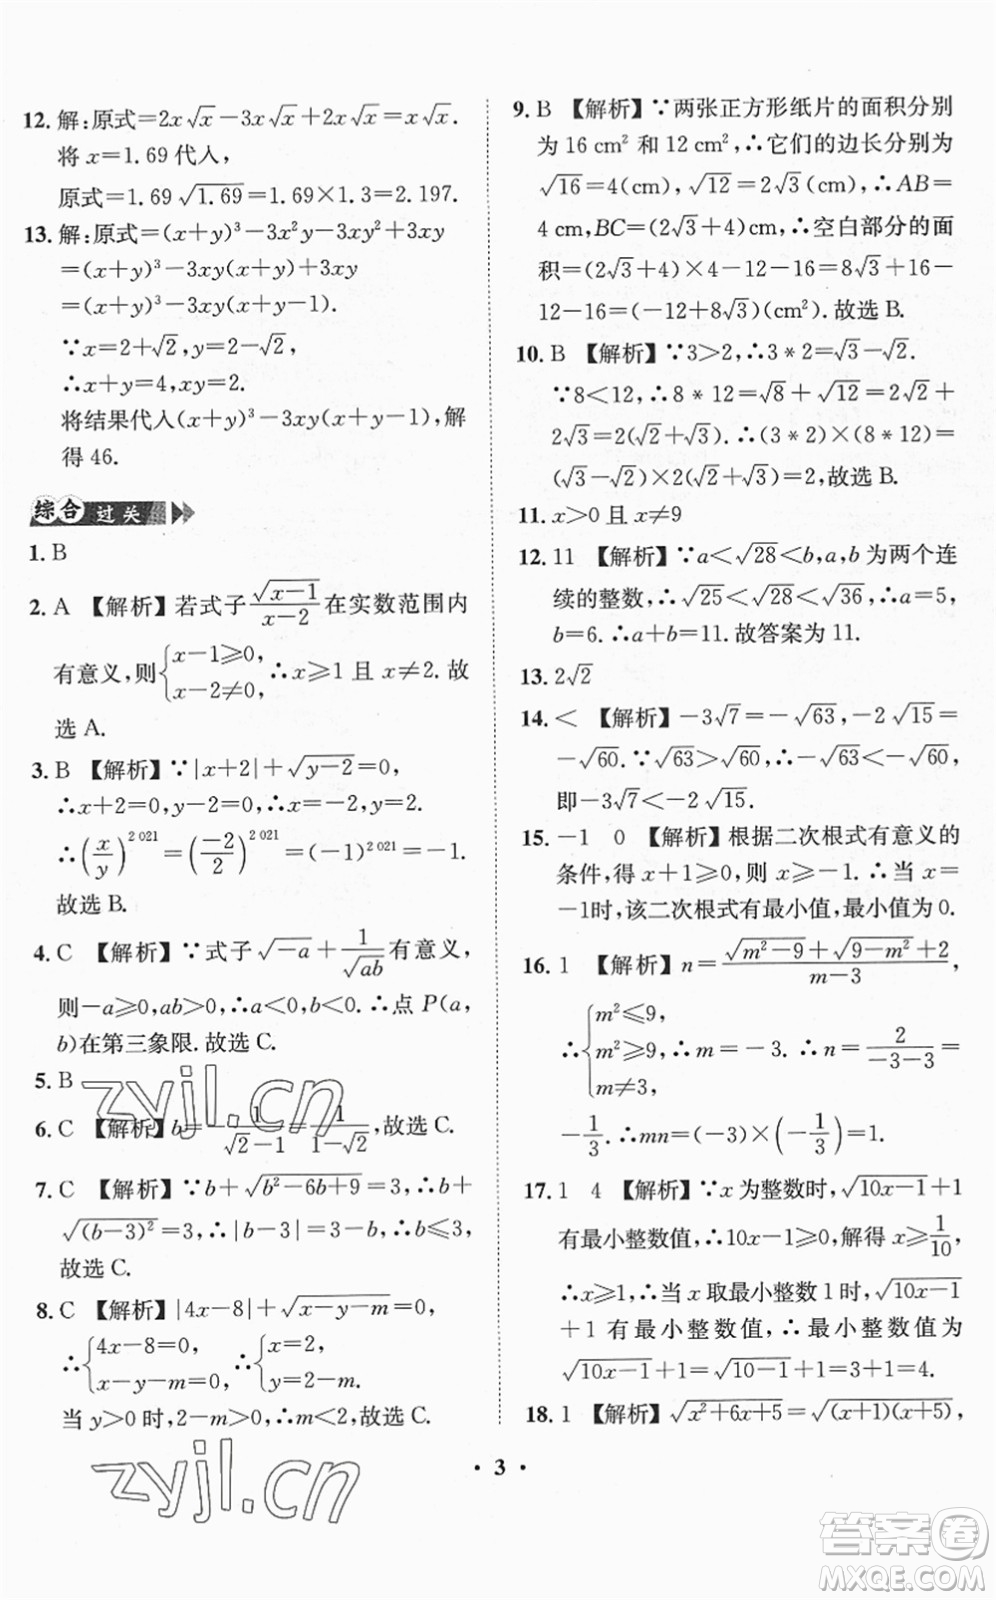 12. 解:原式=2x√x−3x√x+2x√x=x√x.
将 x=1.69代入,
原式=1.69√1.69=1.69×1.3=2.197.
13. 解:原式=(x+y)³−3x²y−3xy²+3xy
=(x+y)³−3xy(x+y)+3xy
=(x+y)³−3xy(x+y−1).
∵x=2+√2,y=2−√2,
∴x+y=4,xy=2.
将结果代入(x+y)³−3xy(x+y−1),解
得 46.
综合过关
1. B
2. A 【解析】若式子√(x−1)/(x−2)在实数范围内
有意义,则{x−1≥0, x−2≠0,∴x≥1 且 x≠2.故
选 A.
3. B 【解析】∵|x+2|+√(y−2)=0,
∴x+2=0,y−2=0.∴x=−2,y=2.
∴(x/y)^2 021=(−2/2)^2 021=(−1)^2 021=−1.
故选 B.
4. C 【解析】∵式子√(−a)+1/√(ab)有意义,
则−a≥0,ab>0,∴a<0,b<0.∴点 P(a,
b)在第三象限.故选 C.
5. B
6. C 【解析】b=1/(√2−1)=1/(1−√2),故选 C.
7. C 【解析】∵b+√(b²−6b+9)=3,∴b+
√((b−3)²)=3,∴|b−3|=3−b,∴b≤3,
故选 C.
8. C 【解析】|4x−8|+√(x−y−m)=0,
∴{4x−8=0, x−y−m=0,∴{x=2, y=2−m.
当 y>0 时,2−m>0,∴m<2,故选 C.
9. B 【解析】∵两张正方形纸片的面积分别
为 16 cm² 和 12 cm²,∴它们的边长分别为
√16=4(cm),√12=2√3(cm),∴AB=
4 cm,BC=(2√3+4)cm,∴空白部分的面
积=(2√3+4)×4−12−16=8√3+16−
12−16=(−12+8√3)(cm²).故选 B.
10. B 【解析】∵3>2,∴3*2=√3−√2.
∵8<12,∴8*12=√8+√12=2√2+
2√3=2(√2+√3).∴(3*2)×(8*12)=
(√3−√2)×2(√2+√3)=2,故选 B.
11. x>0 且 x≠9
12. 11 【解析】∵a<√28<b,a,b 为两个连
续的整数,∴√25<√28<√36,∴a=5,
b=6.∴a+b=11.故答案为 11.
13. 2√2
14. < 【解析】−3√7=−√63,−2√15=
−√60.∵√63>√60,∴−√63<−√60,
即−3√7<−2√15.
15. −1 0 【解析】根据二次根式有意义的
条件,得 x+1≥0,则 x≥−1.∴当 x=
−1时,该二次根式有最小值,最小值为 0.
16. 1 【解析】n=(√(m²−9)+√(9−m²)+2)/(m−3),
∴{m²≤9, m²≥9, m≠3, ∴m=−3.∴n=2/(−3−3)=
−1/3.∴mn=(−3)×(−1/3)=1.
17. 1 4 【解析】∵x 为整数时,√(10x−1)+1
有最小整数值,∴10x−1≥0,解得 x≥1/10,
∴x≥1.∴当 x 取最小整数 1 时,√(10x−1)
+1 有最小整数值,∴最小整数值为
√(10x−1)+1=√(10−1)+1=3+1=4.
18. 1 【解析】√(x²+6x+5)=√((x+1)(x+5)),
• 3 •
zyjl.cn
zyjl.cn
答案卷
MXQE.COM